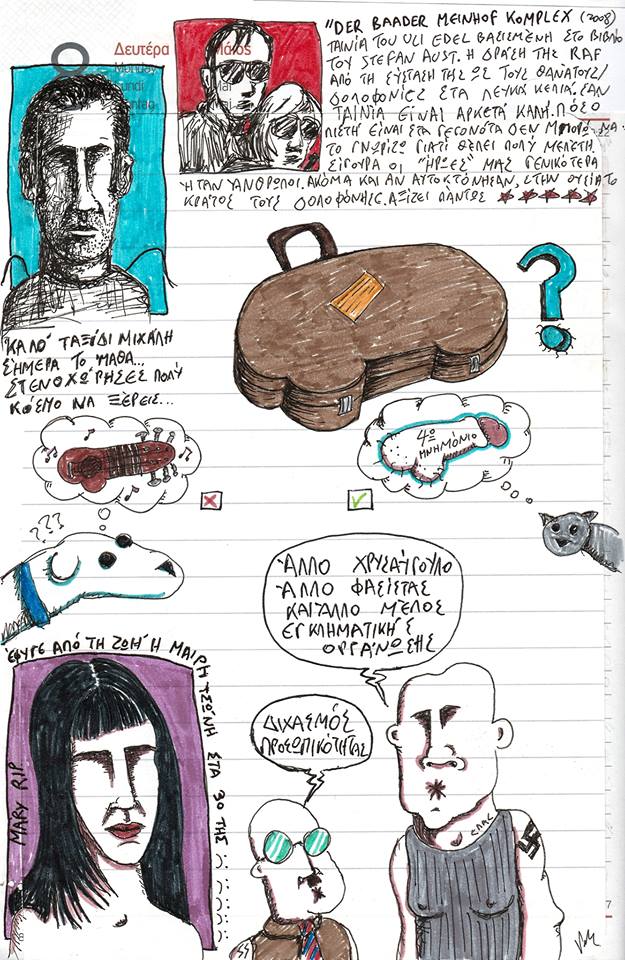 "DER BAADER MEINHOF KOMPLEX (2008)
ΤΑΙΝΙΑ ΤΟΥ ULI EDEL ΒΑΣΙΣΜΕΝΗ ΣΤΟ ΒΙΒΛΙΟ
ΤΟΥ STEFAN AUST. Η ΔΡΑΣΗ ΤΗΣ RAF
ΑΠΟ ΤΗ ΣΥΣΤΑΣΗ ΤΗΣ ΩΣ ΤΟΥΣ ΘΑΝΑΤΟΥΣ/
ΔΟΛΟΦΟΝΙΕΣ ΣΤΑ ΛΕΥΚΑ ΚΕΛΙΑ. ΣΑΝ
ΤΑΙΝΙΑ ΕΙΝΑΙ ΑΡΚΕΤΑ ΚΑΛΗ. ΠΟΣΟ
ΠΙΣΤΗ ΕΙΝΑΙ ΣΤΑ ΓΕΓΟΝΟΤΑ ΔΕΝ ΜΠΟΡΩ ΝΑ
ΤΟ ΓΝΩΡΙΖΩ ΓΙΑΤΙ ΘΕΛΕΙ ΠΟΛΥ ΜΕΛΕΤΗ
ΣΙΓΟΥΡΑ ΟΙ "ΗΡΩΕΣ" ΜΑΣ ΓΕΝΙΚΟΤΕΡΑ
ΗΤΑΝ ΑΝΘΡΩΠΟΙ. ΑΚΟΜΑ ΚΑΙ ΑΝ ΑΥΤΟΚΤΟΝΗΣΑΝ, ΣΤΗΝ ΟΥΣΙΑ ΤΟ
ΚΡΑΤΟΣ ΤΟΥΣ ΔΟΛΟΦΟΝΗΣΕ. ΑΞΙΖΕΙ ΠΑΝΤΩΣ
Δευτέρα
Μάιος
Monday
ΚΑΛΟ ΤΑΞΙΔΙ ΜΙΧΑΛΗ
ΣΗΜΕΡΑ ΤΟ ΜΑΘΑ...
ΣΤΕΝΟΧΩΡΗΣΕΣ ΠΟΛΥ
ΚΟΣΜΟ ΝΑ ΞΕΡΕΙΣ...
?
4ο
ΜΝΗΜΟΝΙΟ
???
ΑΛΛΟ ΧΡΥΣΑΥΓΟΥΛΟ
ΑΛΛΟ ΦΑΣΙΣΤΑΣ
ΚΑΙ ΑΛΛΟ ΜΕΛΟΣ
ΕΓΚΛΗΜΑΤΙΚΗΣ
ΟΡΓΑΝΩΣΗΣ
ΕΦΥΓΕ ΑΠΟ ΤΗ ΖΩΗ Η ΜΑΙΡΗ ΤΣΩΝΗ ΣΤΑ 30 ΤΗΣ
MARY RIP
ΔΙΧΑΣΜΟΣ
ΠΡΟΣΩΠΙΚΟΤΗΤΑΣ
ΕΛΑΣ
7